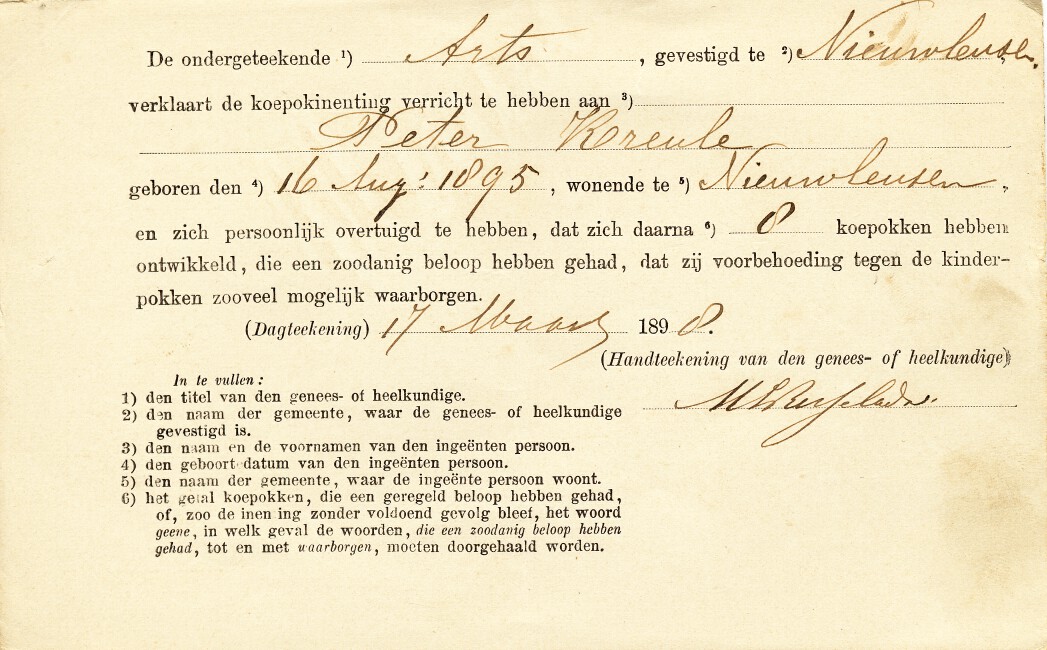 De ondergeteekende ¹) Arts, gevestigd te ²) Nieuwleusen.
verklaart de koepokinenting verricht te hebben aan ³)
Peter Kreule
geboren den ⁴) 16 Aug: 1895, wonende te ⁵) Nieuwleusen,
en zich persoonlijk overtuigd te hebben, dat zich daarna ⁶) 8 koepokken hebben
ontwikkeld, die een zoodanig beloop hebben gehad, dat zij voorbehoeding tegen de kinder-
pokken zooveel mogelijk waarborgen.
(Dagteekening) 17 Maart 1898.
(Handteekening van den genees- of heelkundige)
In te vullen:
1) den titel van den genees- of heelkundige.
2) den naam der gemeente, waar de genees- of heelkundige
gevestigd is.
3) den naam en de voornamen van den ingeënten persoon.
4) den geboort datum van den ingeënten persoon.
5) den naam der gemeente, waar de ingeënte persoon woont.
6) het getal koepokken, die een geregeld beloop hebben gehad,
of, zoo de inen ing zonder voldoend gevolg bleef, het woord
geene, in welk geval de woorden, die een zoodanig beloop hebben
gehad, tot en met waarborgen, moeten doorgehaald worden.